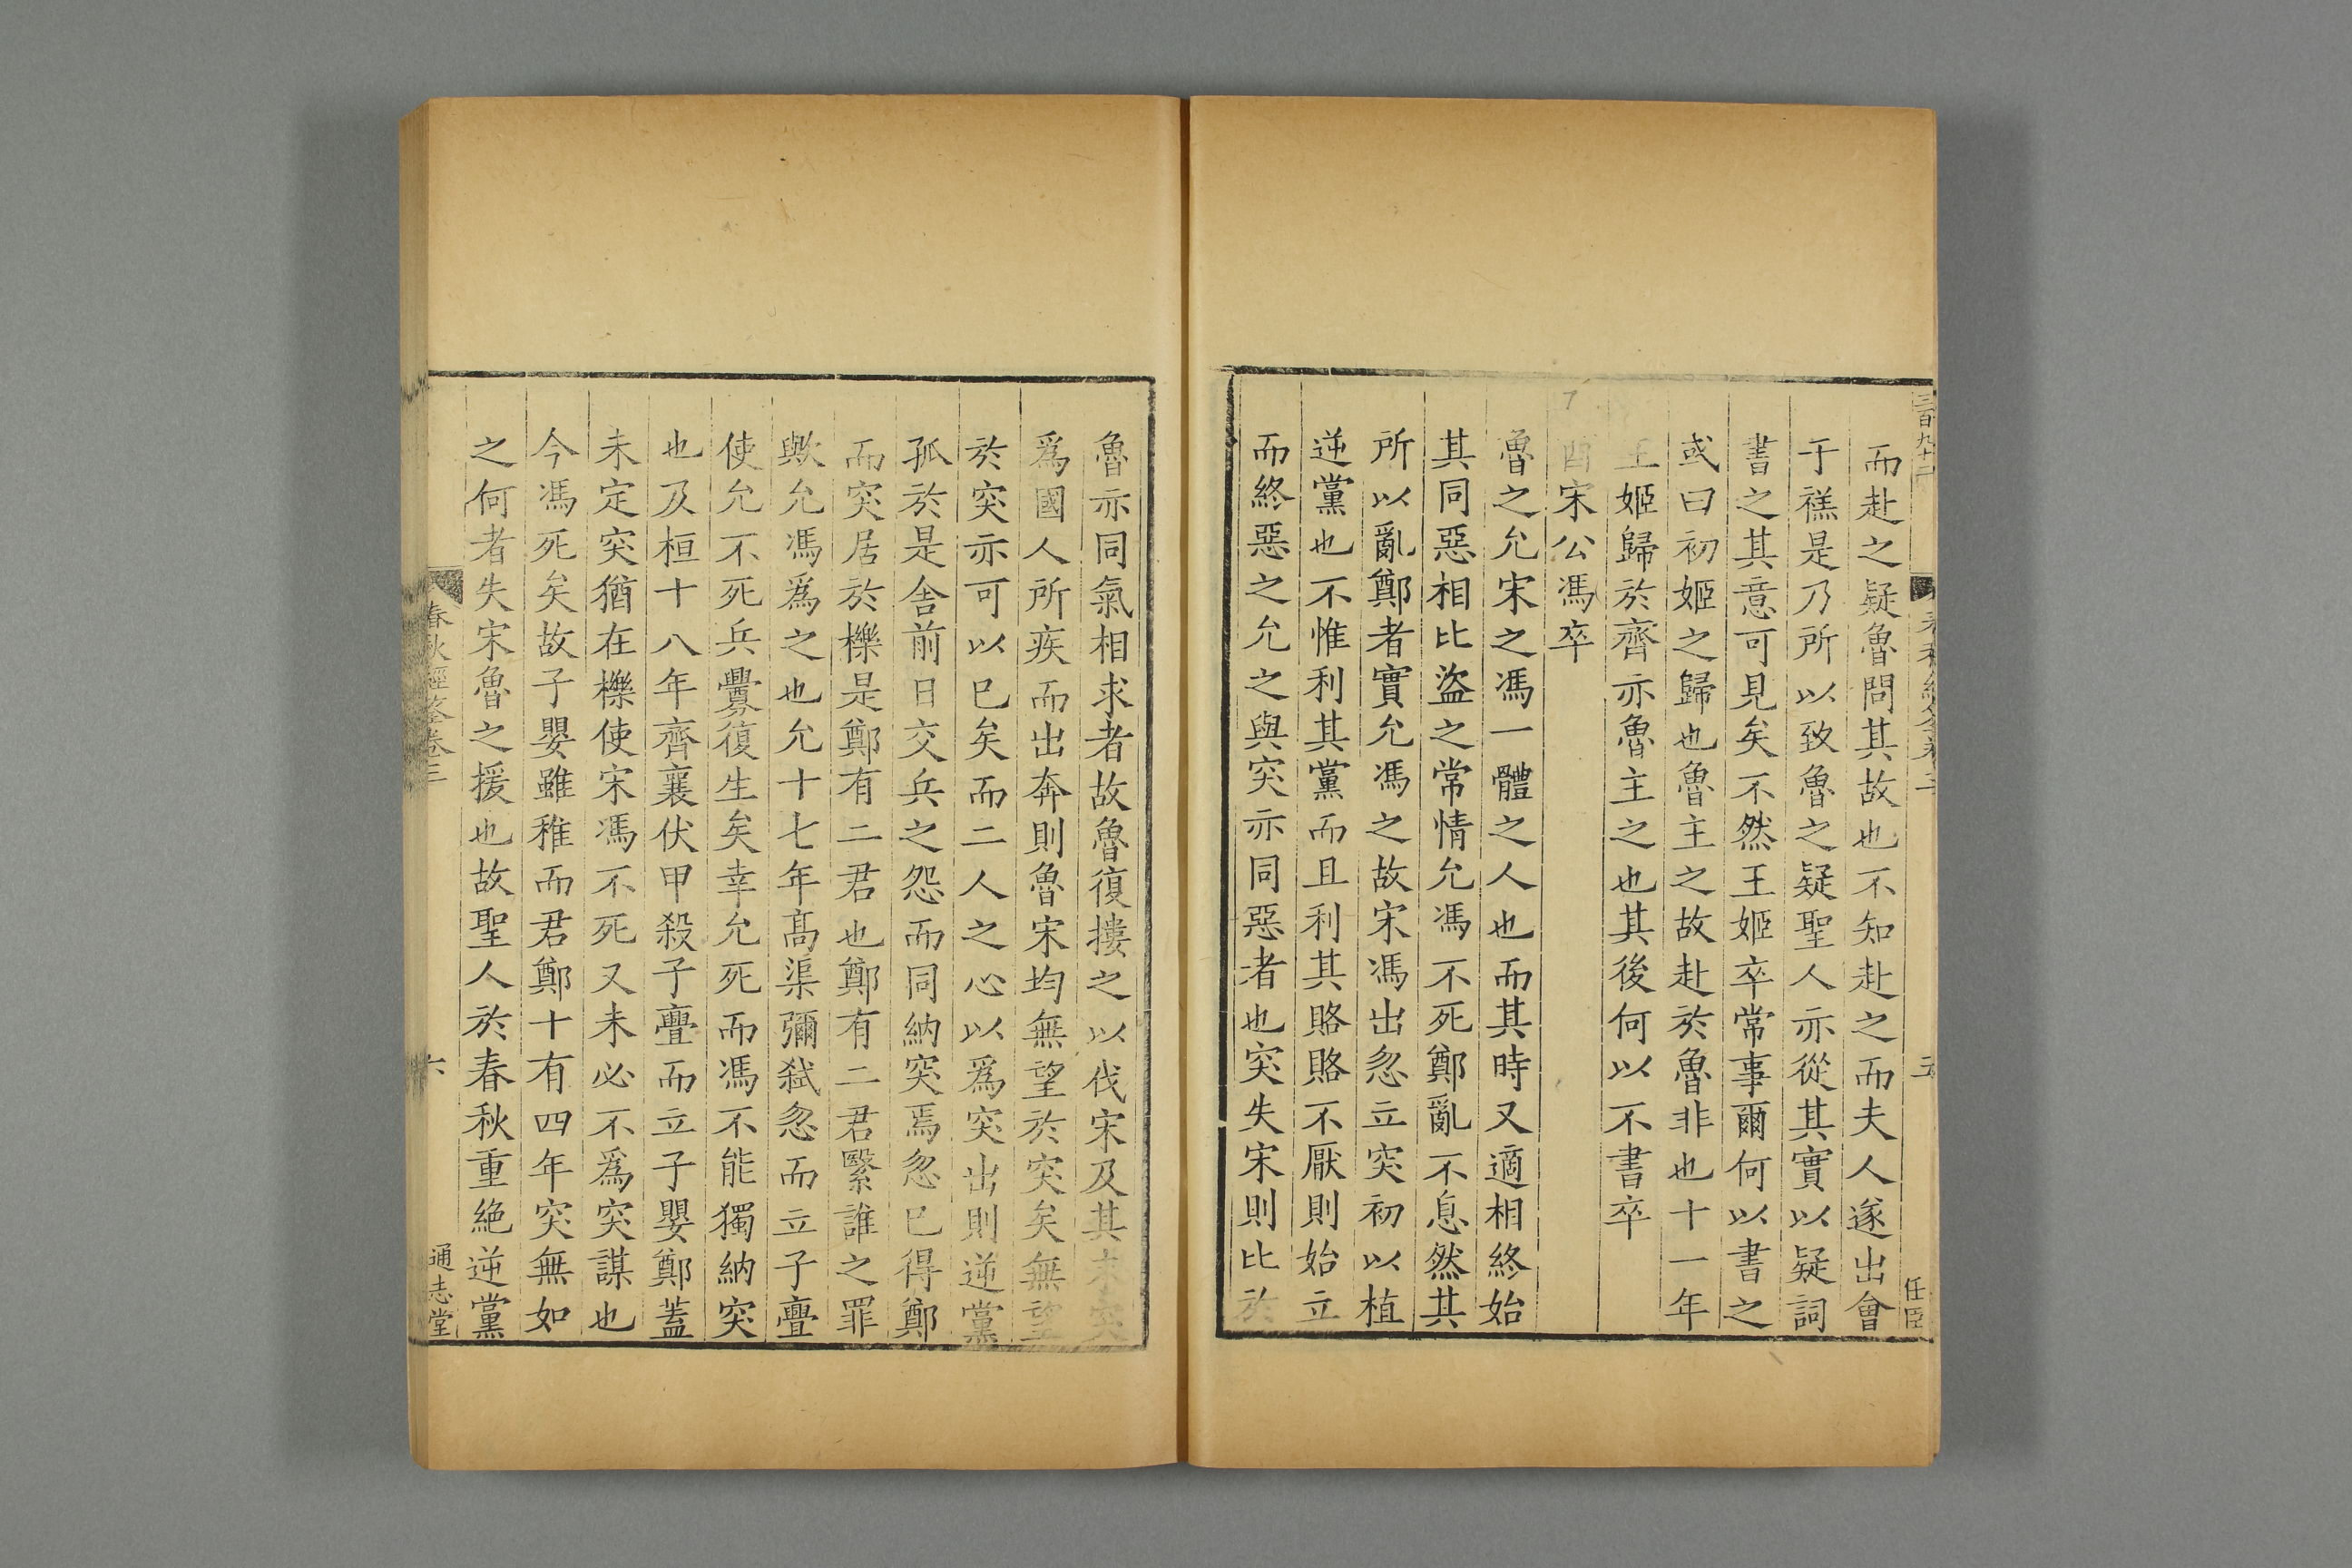 三百九十二
而赴之疑魯問其故也不知赴之而夫人遂出會
于禚是乃所以致魯之疑聖人亦從其實以疑詞
書之其意可見矣不然王姬卒常事爾何以書之
或曰初姬之歸也魯主之故赴於魯非也十一年
王姬歸於齊亦魯主之也其後何以不書卒
酉宋公馮卒
魯之允宋之馮一體之人也而其時又適相終始
其同惡相比盜之常情允馮不死鄭亂不息然其
所以亂鄭者實允馮之故宋馮出忽立突初以植
逆黨也不惟利其黨而且利其賂賂不厭則始立
而終惡之允之與突亦同惡者也突失宋則比於
任臣
魯亦同氣相求者故魯復摟之以伐宋及其末突
爲國人所疾而出奔則魯宋均無望於突矣無望
於突亦可以巳矣而二人之心以爲突出則逆黨
孤於是舍前日交兵之怨而同納突焉忽巳得鄭
而突居於櫟是鄭有二君也鄭有二君繄誰之罪
歟允馮爲之也允十七年高渠彌弑忽而立子亹
使允不死兵釁復生矣幸允死而馮不能獨納突
也及桓十八年齊襄伏甲殺子亹而立子嬰鄭蓋
未定突猶在櫟使宋馮不死又未必不爲突謀也
今馮死矣故子嬰雖稚而君鄭十有四年突無如
之何者失宋魯之援也故聖人於春秋重絕逆黨
春秋經筌卷三
六
通志堂